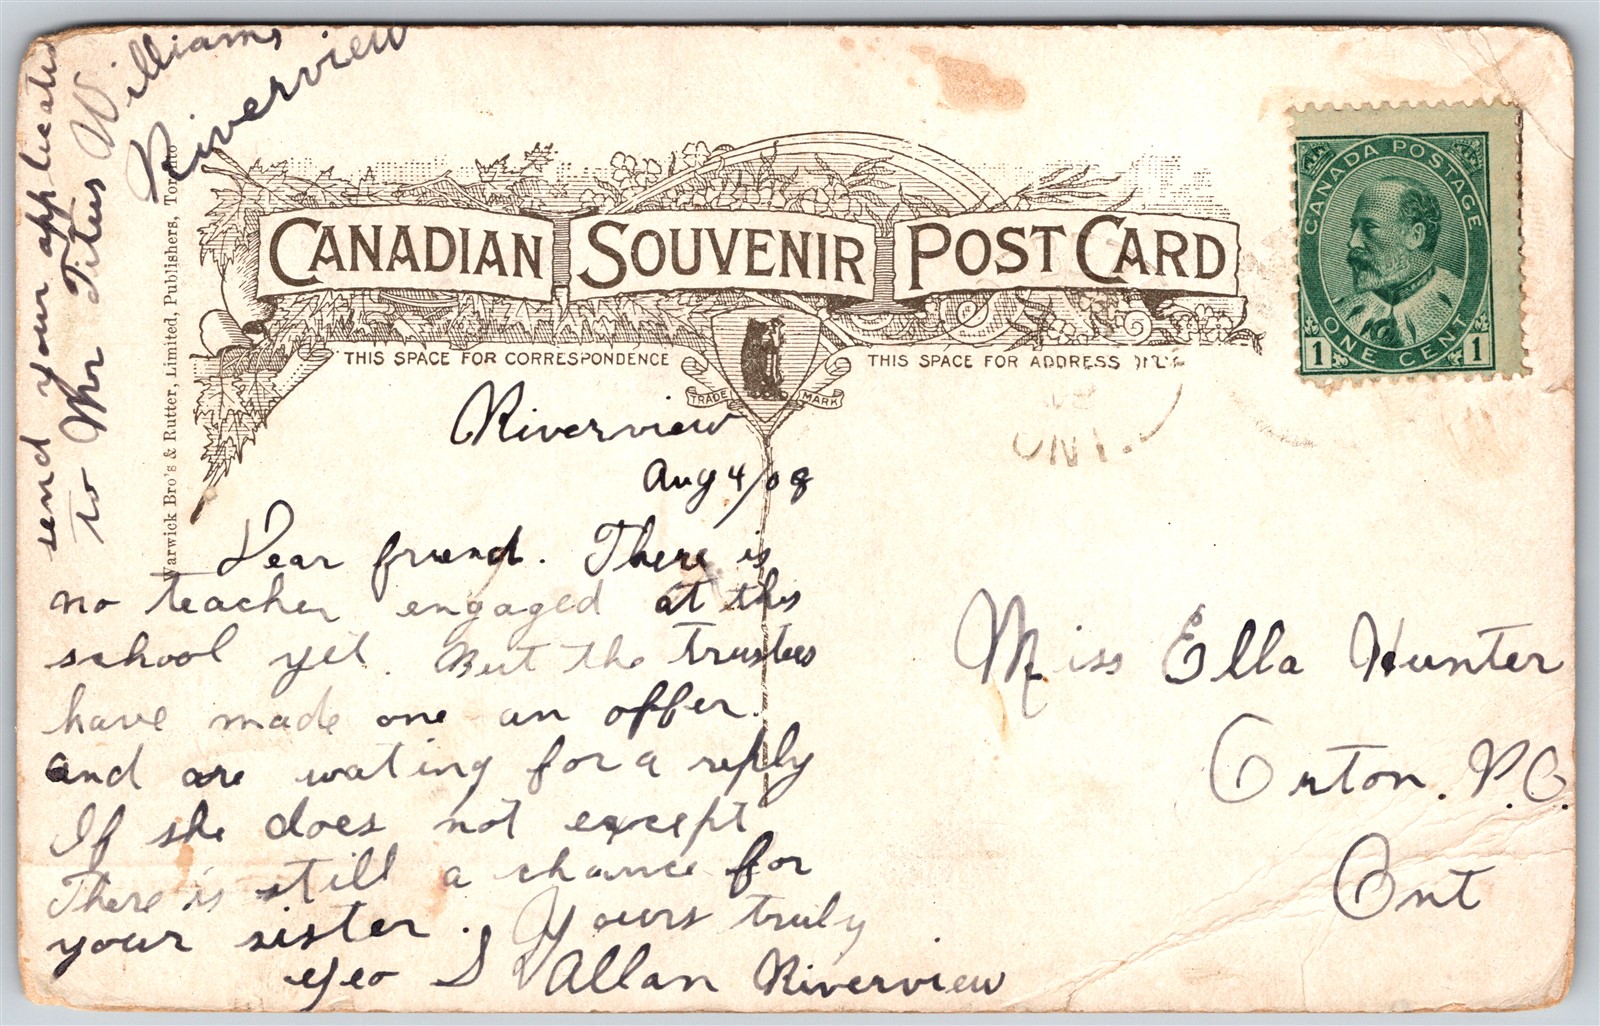 CANADIAN SOUVENIR POST CARD
THIS SPACE FOR CORRESPONDENCE
THIS SPACE FOR ADDRESS
TRADE MARK
Warwick Bro's & Rutter, Limited, Publishers, Toronto
CANADA POSTAGE
ONE CENT
1 1
ONT.
Riverview
Aug 4/08
Dear friend. There is
no teacher engaged at this
school yet. But the trustees
have made one an offer.
and are wating for a reply
If she does not except
There is still a chance for
your sister. Yours truly
Geo S Allan Riverview
send your application
to Mr Titus Williams
Riverview
Miss Ella Hunter
Orton. P.O.
Ont